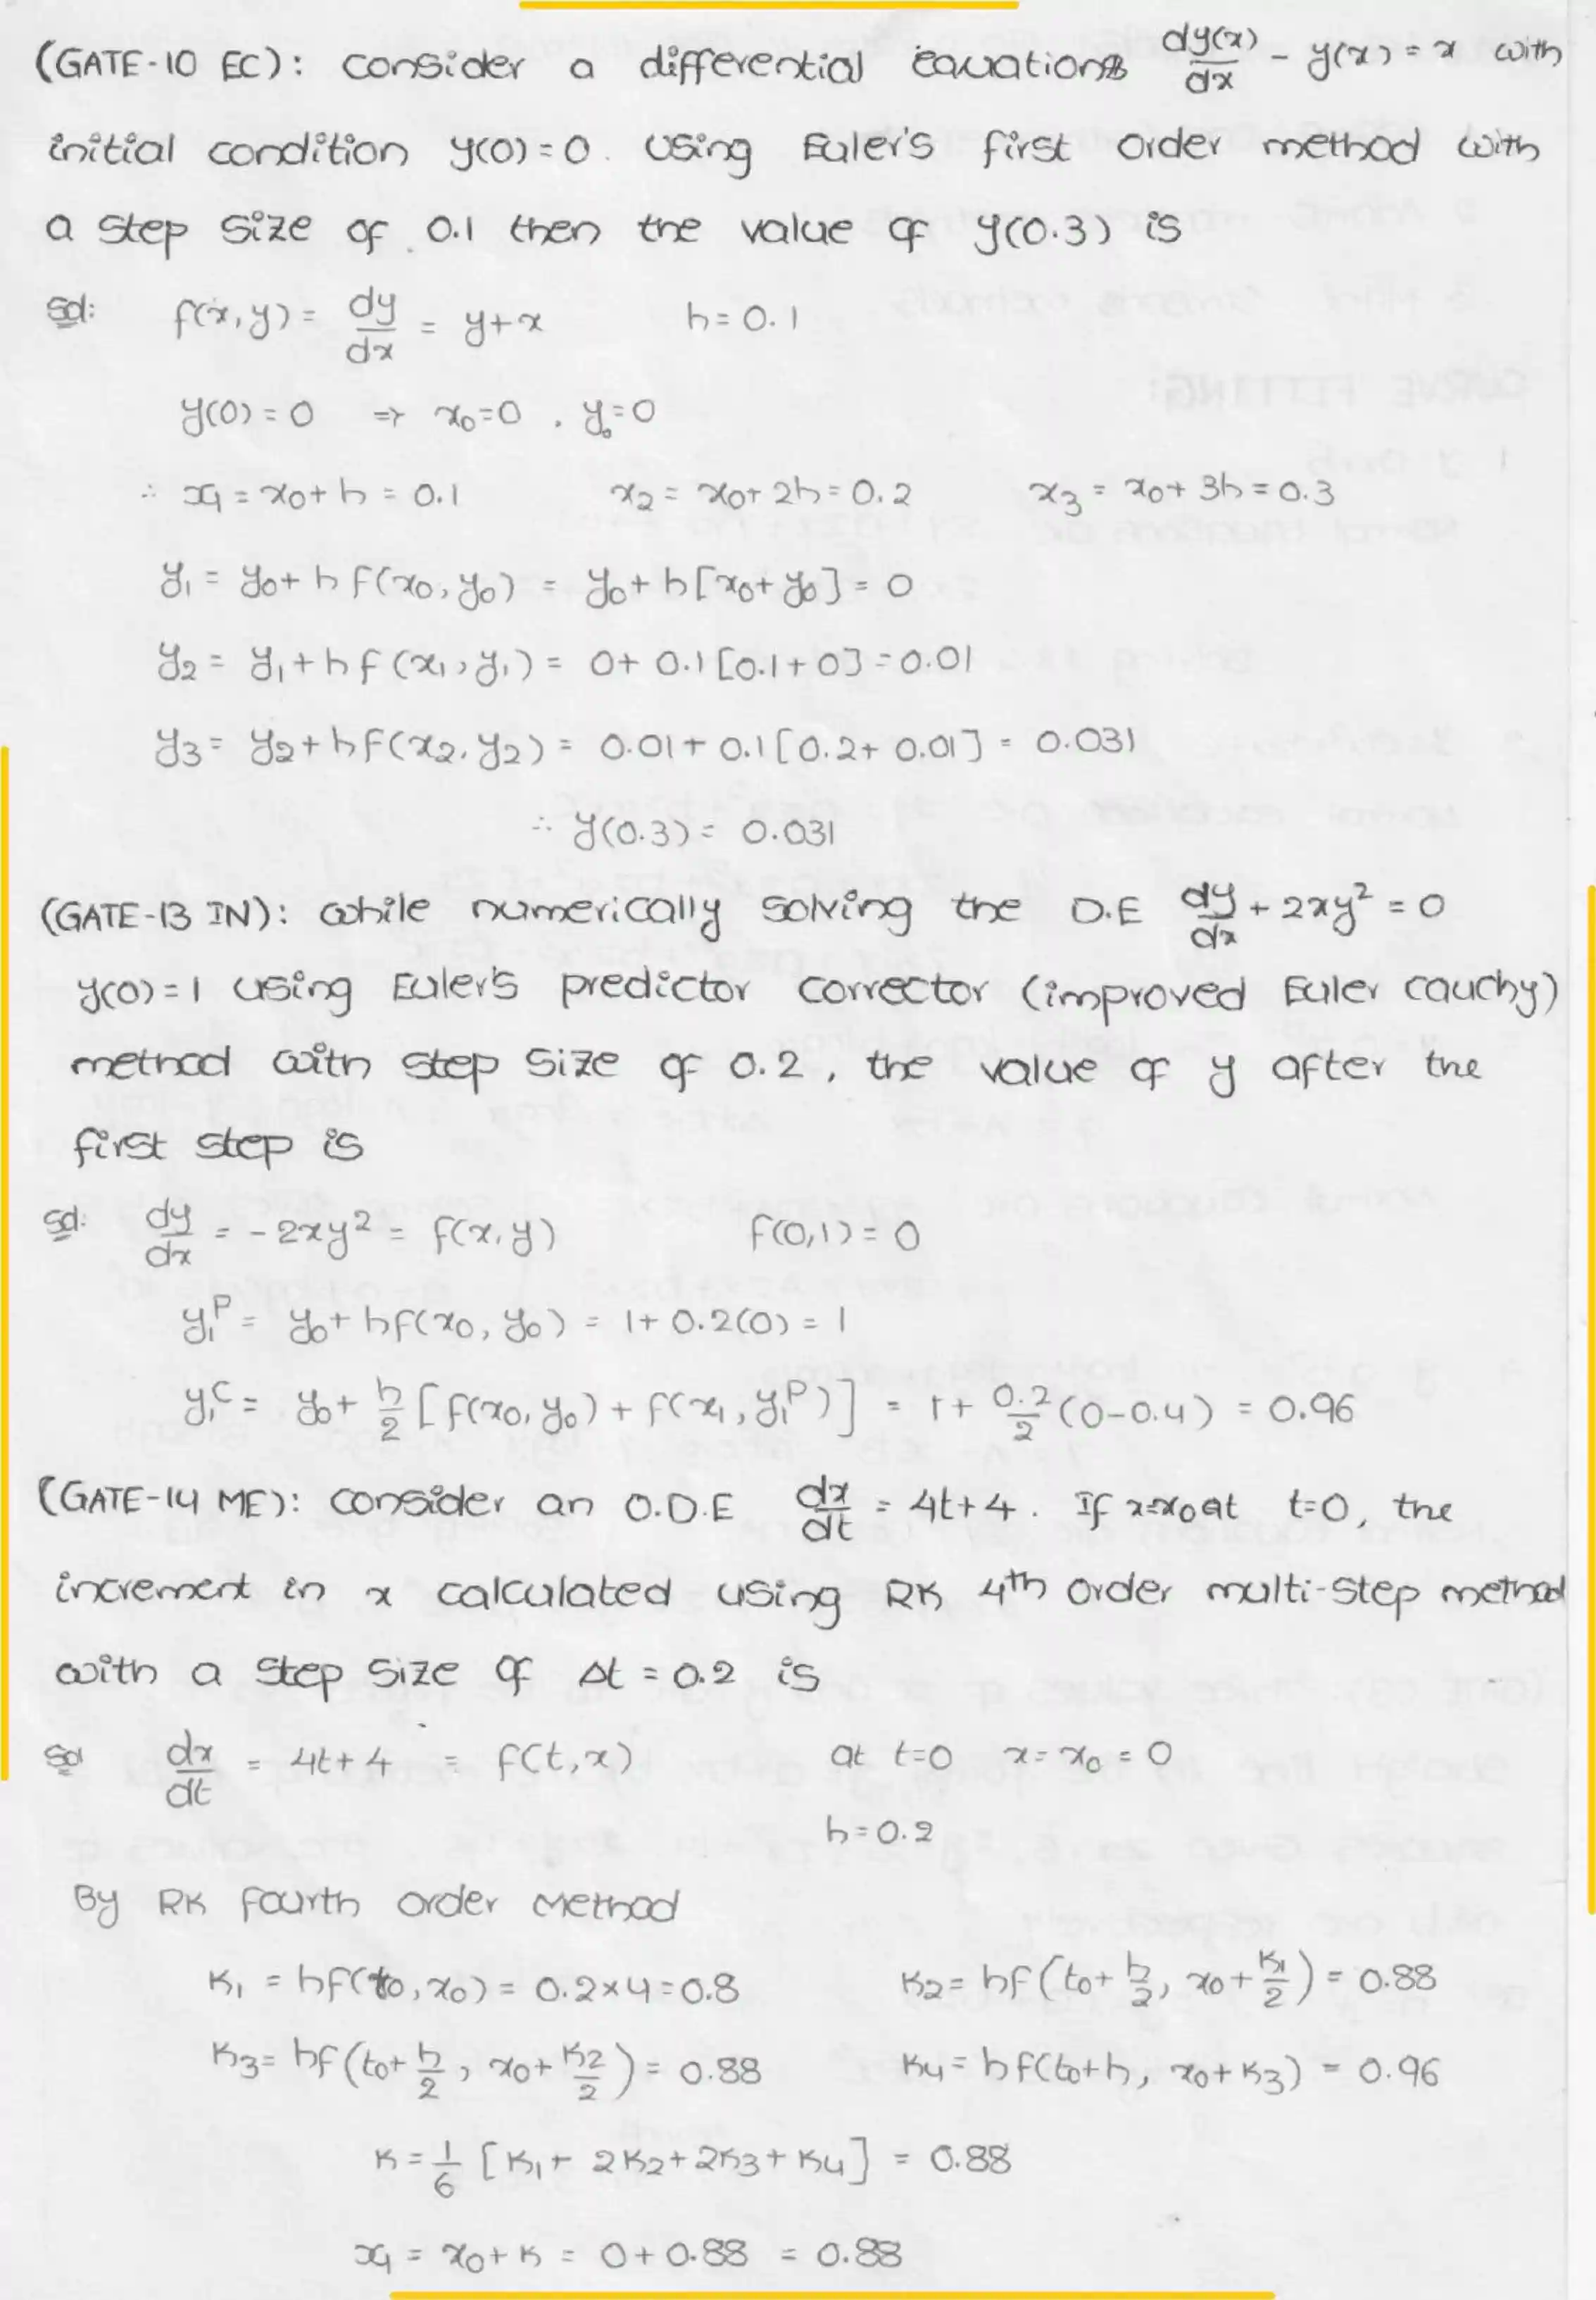 (GATE-10 EC): consider a differential equations dy(x)/dx - y(x) = x with
initial condition y(0)=0. Using Euler's first order method with
a step size of 0.1 then the value of y(0.3) is
Sol: f(x,y) = dy/dx = y+x h=0.1
y(0)=0 ⇒ x₀=0, y₀=0
∴ x₁ = x₀+h = 0.1 x₂ = x₀+2h = 0.2 x₃ = x₀+3h = 0.3
y₁ = y₀+h f(x₀,y₀) = y₀+h[x₀+y₀] = 0
y₂ = y₁+h f(x₁,y₁) = 0+0.1[0.1+0] = 0.01
y₃ = y₂+h f(x₂,y₂) = 0.01+0.1[0.2+0.01] = 0.031
∴ y(0.3) = 0.031
(GATE-13 IN): while numerically solving the D.E dy/dx + 2xy² = 0
y(0)=1 using Euler's predictor corrector (improved Euler cauchy)
method with step size of 0.2, the value of y after the
first step is
Sol: dy/dx = -2xy² = f(x,y) f(0,1) = 0
y₁ᴾ = y₀+hf(x₀,y₀) = 1+0.2(0) = 1
y₁ᶜ = y₀ + h/2 [f(x₀,y₀) + f(x₁,y₁ᴾ)] = 1 + 0.2/2 (0-0.4) = 0.96
(GATE-14 ME): consider an O.D.E dx/dt = 4t+4. If x=x₀ at t=0, the
increment in x calculated using RK 4th order multi-step method
with a step size of Δt = 0.2 is
Sol dx/dt = 4t+4 = f(t,x) at t=0 x=x₀=0
h=0.2
By RK fourth order Method
K₁ = hf(t₀,x₀) = 0.2×4=0.8 K₂ = hf(t₀+h/2, x₀+K₁/2) = 0.88
K₃ = hf(t₀+h/2, x₀+K₂/2) = 0.88 K₄ = hf(t₀+h, x₀+K₃) = 0.96
K = 1/6 [K₁+2K₂+2K₃+K₄] = 0.88
x₁ = x₀+K = 0+0.88 = 0.88